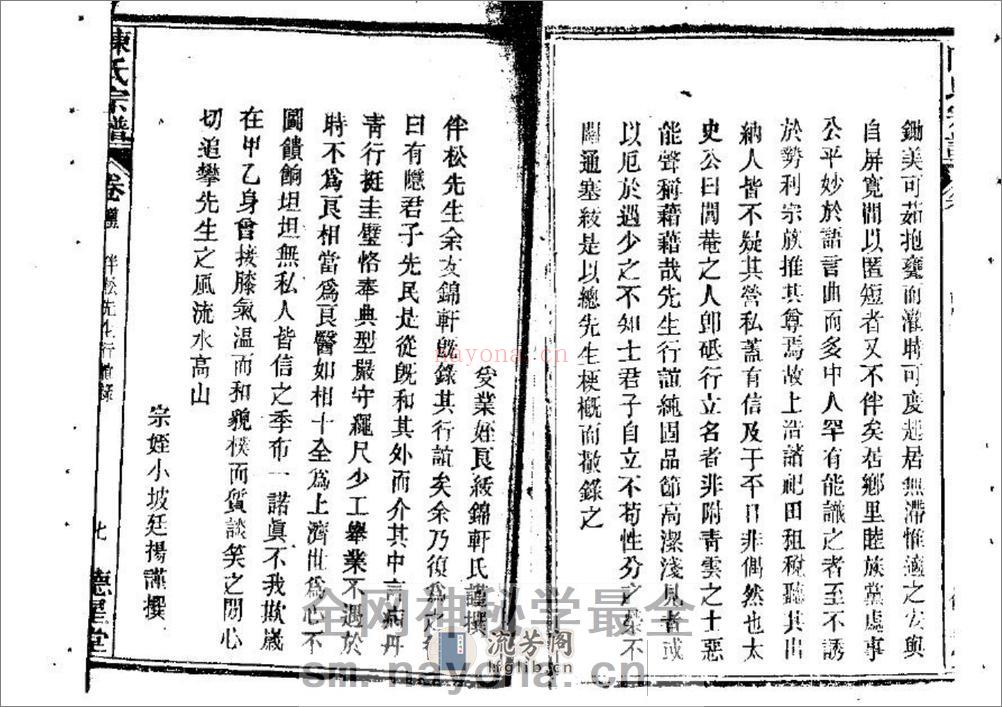 鋤美可茹抱甕而灌時可慶起居無滯惟適之安與
自屏寬閒以匿短者又不伴矣居鄉里睦族黨處事
公平妙於語言曲而多中人罕有能識之者至不誘
於勢利宗族推其尊焉故上浩諸祀田租稅聽其出
納人皆不疑其營私蓋有信及于平日非偶然也太
史公曰閭巷之人卽砥行立名者非附靑雲之士惡
能聲稱藉藉哉先生行誼純固品節高潔淺見者或
以厄於遇少之不知士君子自立不苟性分之葉不
關通塞綬是以總先生梗概而敬錄之
受業姪良綬錦軒氏謹撰
伴松先生余友錦軒旣錄其行誼矣余乃復爲之
曰有隱君子先民是從旣和其外而介其中言病丹
靑行挺圭璧恪奉典型嚴守繩尺少工舉業不遇於
時不爲良相當爲良醫如相十全爲上濟世爲心不
圖饋餉坦坦無私人皆信之季布一諾眞不我欺歲
在甲乙身曾接膝氣溫而和貌樸而質談笑之間心
切追攀先生之風流水高山
宗姪小坡廷揚謹撰
陳氏宗譜
卷
伴松先生行誼錄
七
德星堂
全网神秘学最全
nayona.cn
sm.nayona.cn
流芳阁
lfglib.cn